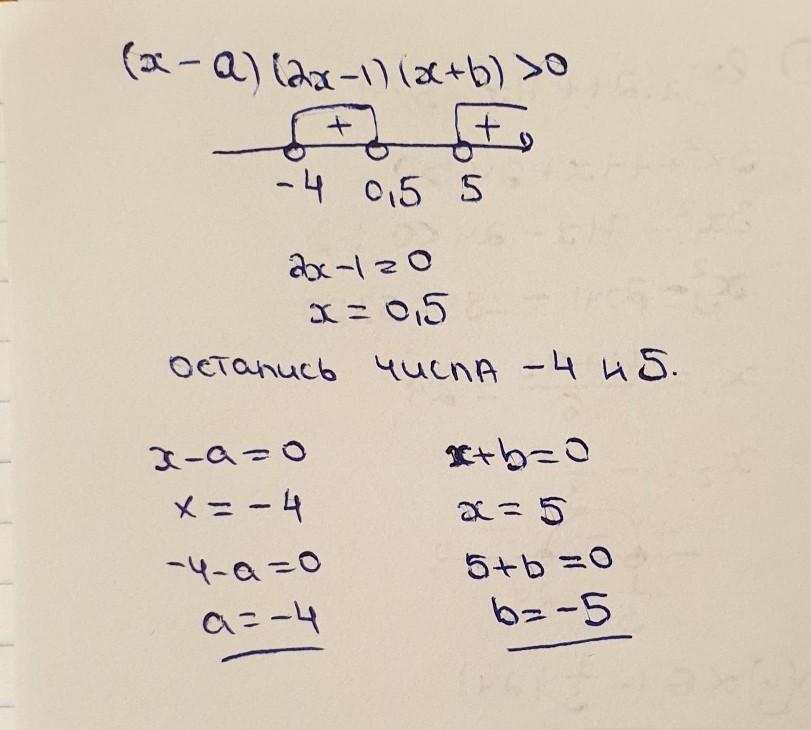 (x-a)(2x-1)(x+b)>0
+ +
-4 0,5 5
2x-1=0
x=0,5
остались числа -4 и 5.
x-a=0 x+b=0
x=-4 x=5
-4-a=0 5+b=0
a=-4 b=-5